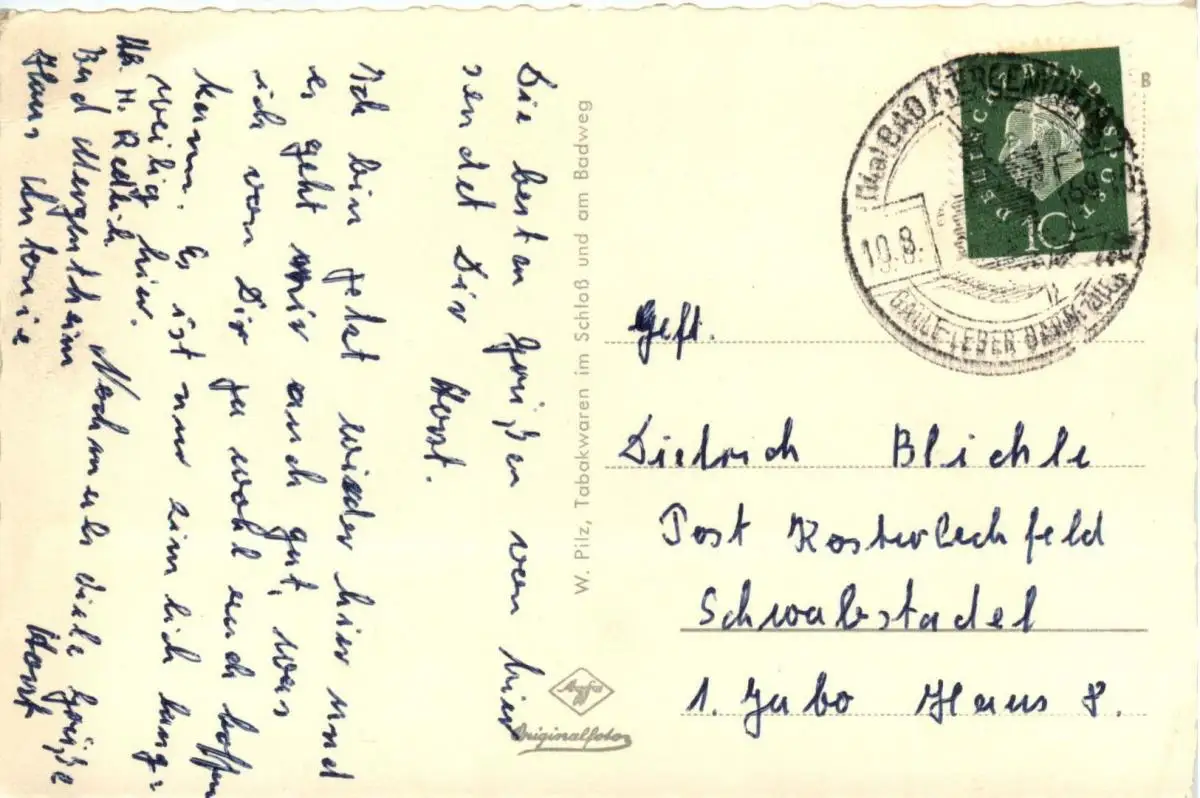 Die besten Grüßen von hier
sendet Dir Horst.
Ich bin jetzt wieder hier und
es geht mir auch gut, was
ich von Dir ja wohl auch hoffen
kann. Es ist nur ziemlich lang=
weilig hier.
Nochmals viele Grüße
Horst
Ab. H. Redlich
Bad Mergentheim
Haus Antonie
W. Pilz, Tabakwaren im Schloß und am Badweg
Agfa
Originalfoto
DEUTSCHE BUNDESPOST
10
BAD MERGENTHEIM
10.8.
GALLE-LEBER-DARM
B
Geft.
Dietrich Blichle
Post Kosterlechfeld
Schwabstadel
1. Jabo Haus 8.